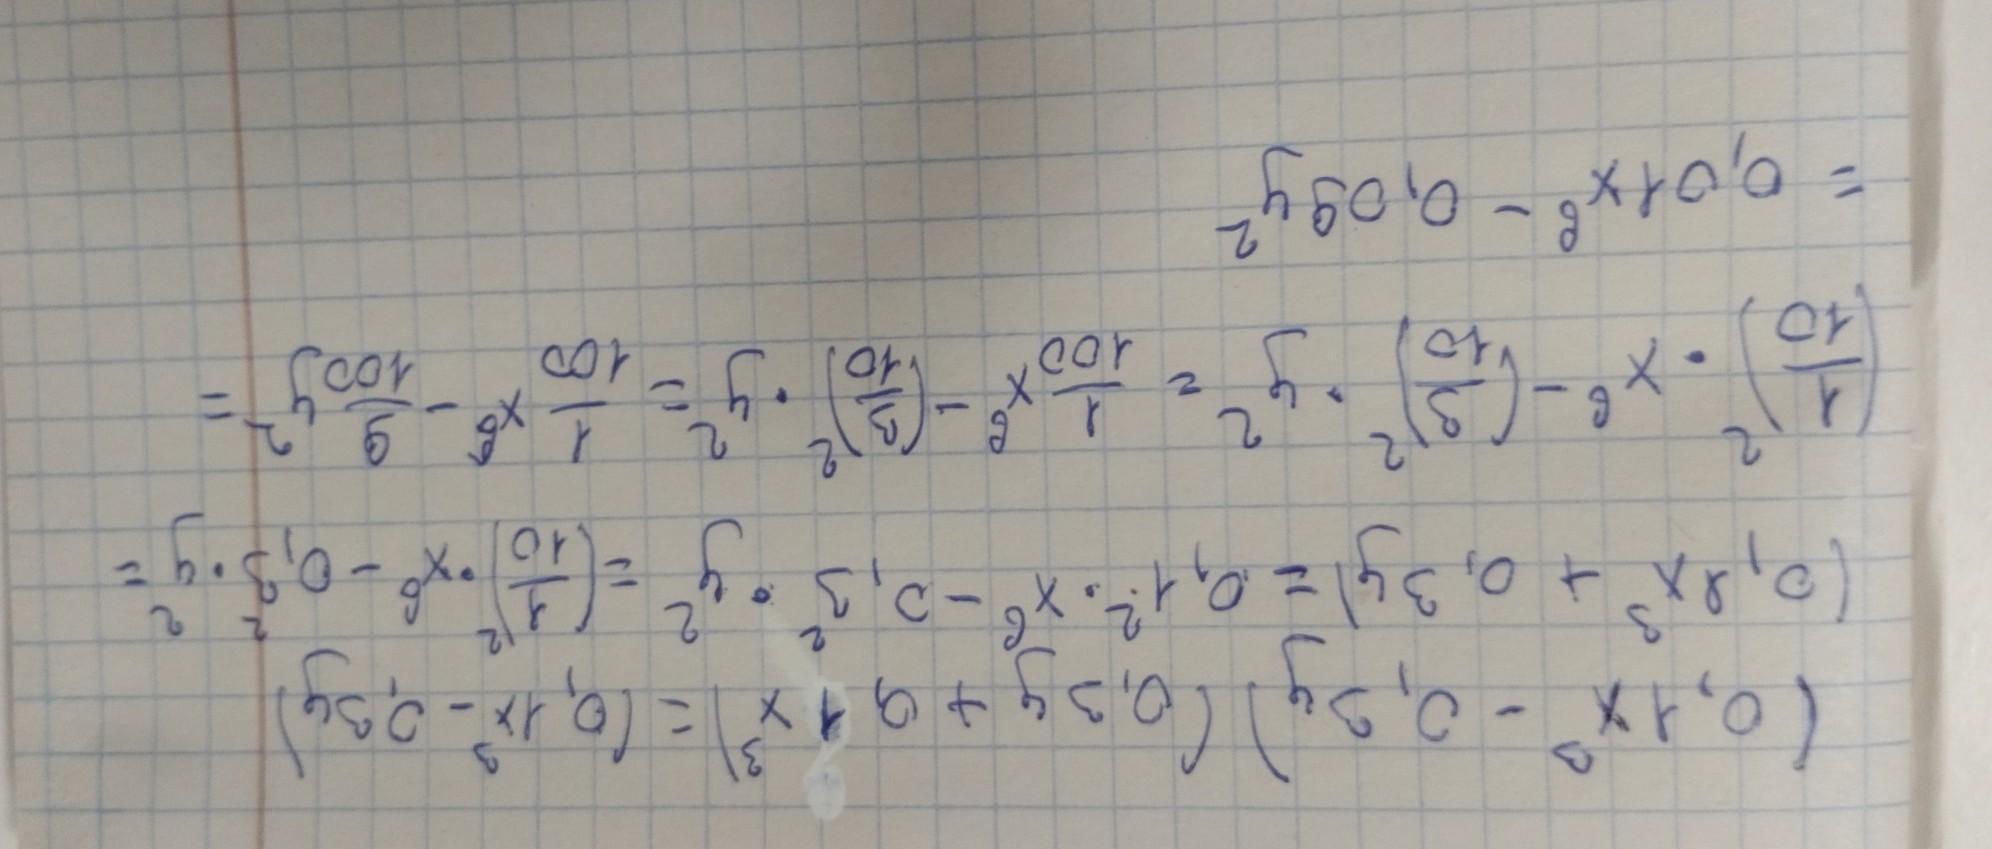 (0,1x³ - 0,3y)(0,3y + 0,1x³) = (0,1x³ - 0,3y)
(0,1x³ + 0,3y) = 0,1² · x⁶ - 0,3² · y² = (1/10)² · x⁶ - 0,3² · y² =
(1/10)² · x⁶ - (3/10)² · y² = 1/100 x⁶ - (3/10)² · y² = 1/100 x⁶ - 9/100 y² =
= 0,01x⁶ - 0,09y²